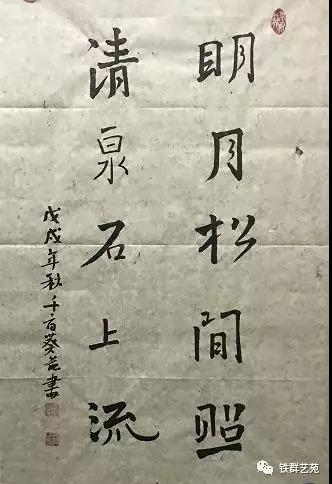 明月松間照
清泉石上流
戊戌年秋千百葵芒書
铁群艺苑